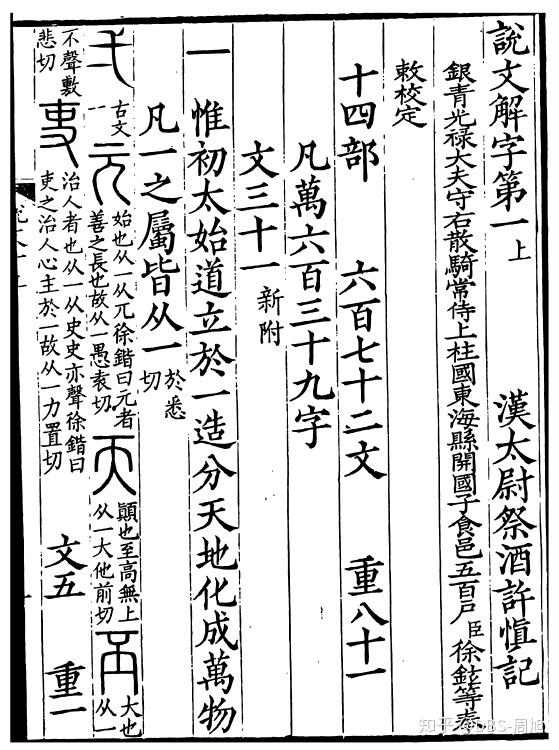 說文解字第一上 漢太尉祭酒許慎記
銀青光禄大夫守右散騎常侍上柱國東海縣開國子食邑五百戶臣徐鉉等奉
敕校定
十四部 六百七十二文 重八十一
凡萬六百三十九字
文三十一新附
一 惟初太始道立於一造分天地化成萬物
凡一之屬皆从一於悉切
弌古文一 元始也从一从兀徐鍇曰元者善之長也故从一愚袁切 天顛也至高無上从一大他前切 丕大也从一
不聲敷悲切 吏治人者也从一从史史亦聲徐鍇曰吏之治人心主於一故从一力置切 文五 重一
知乎 @DBS-周旭